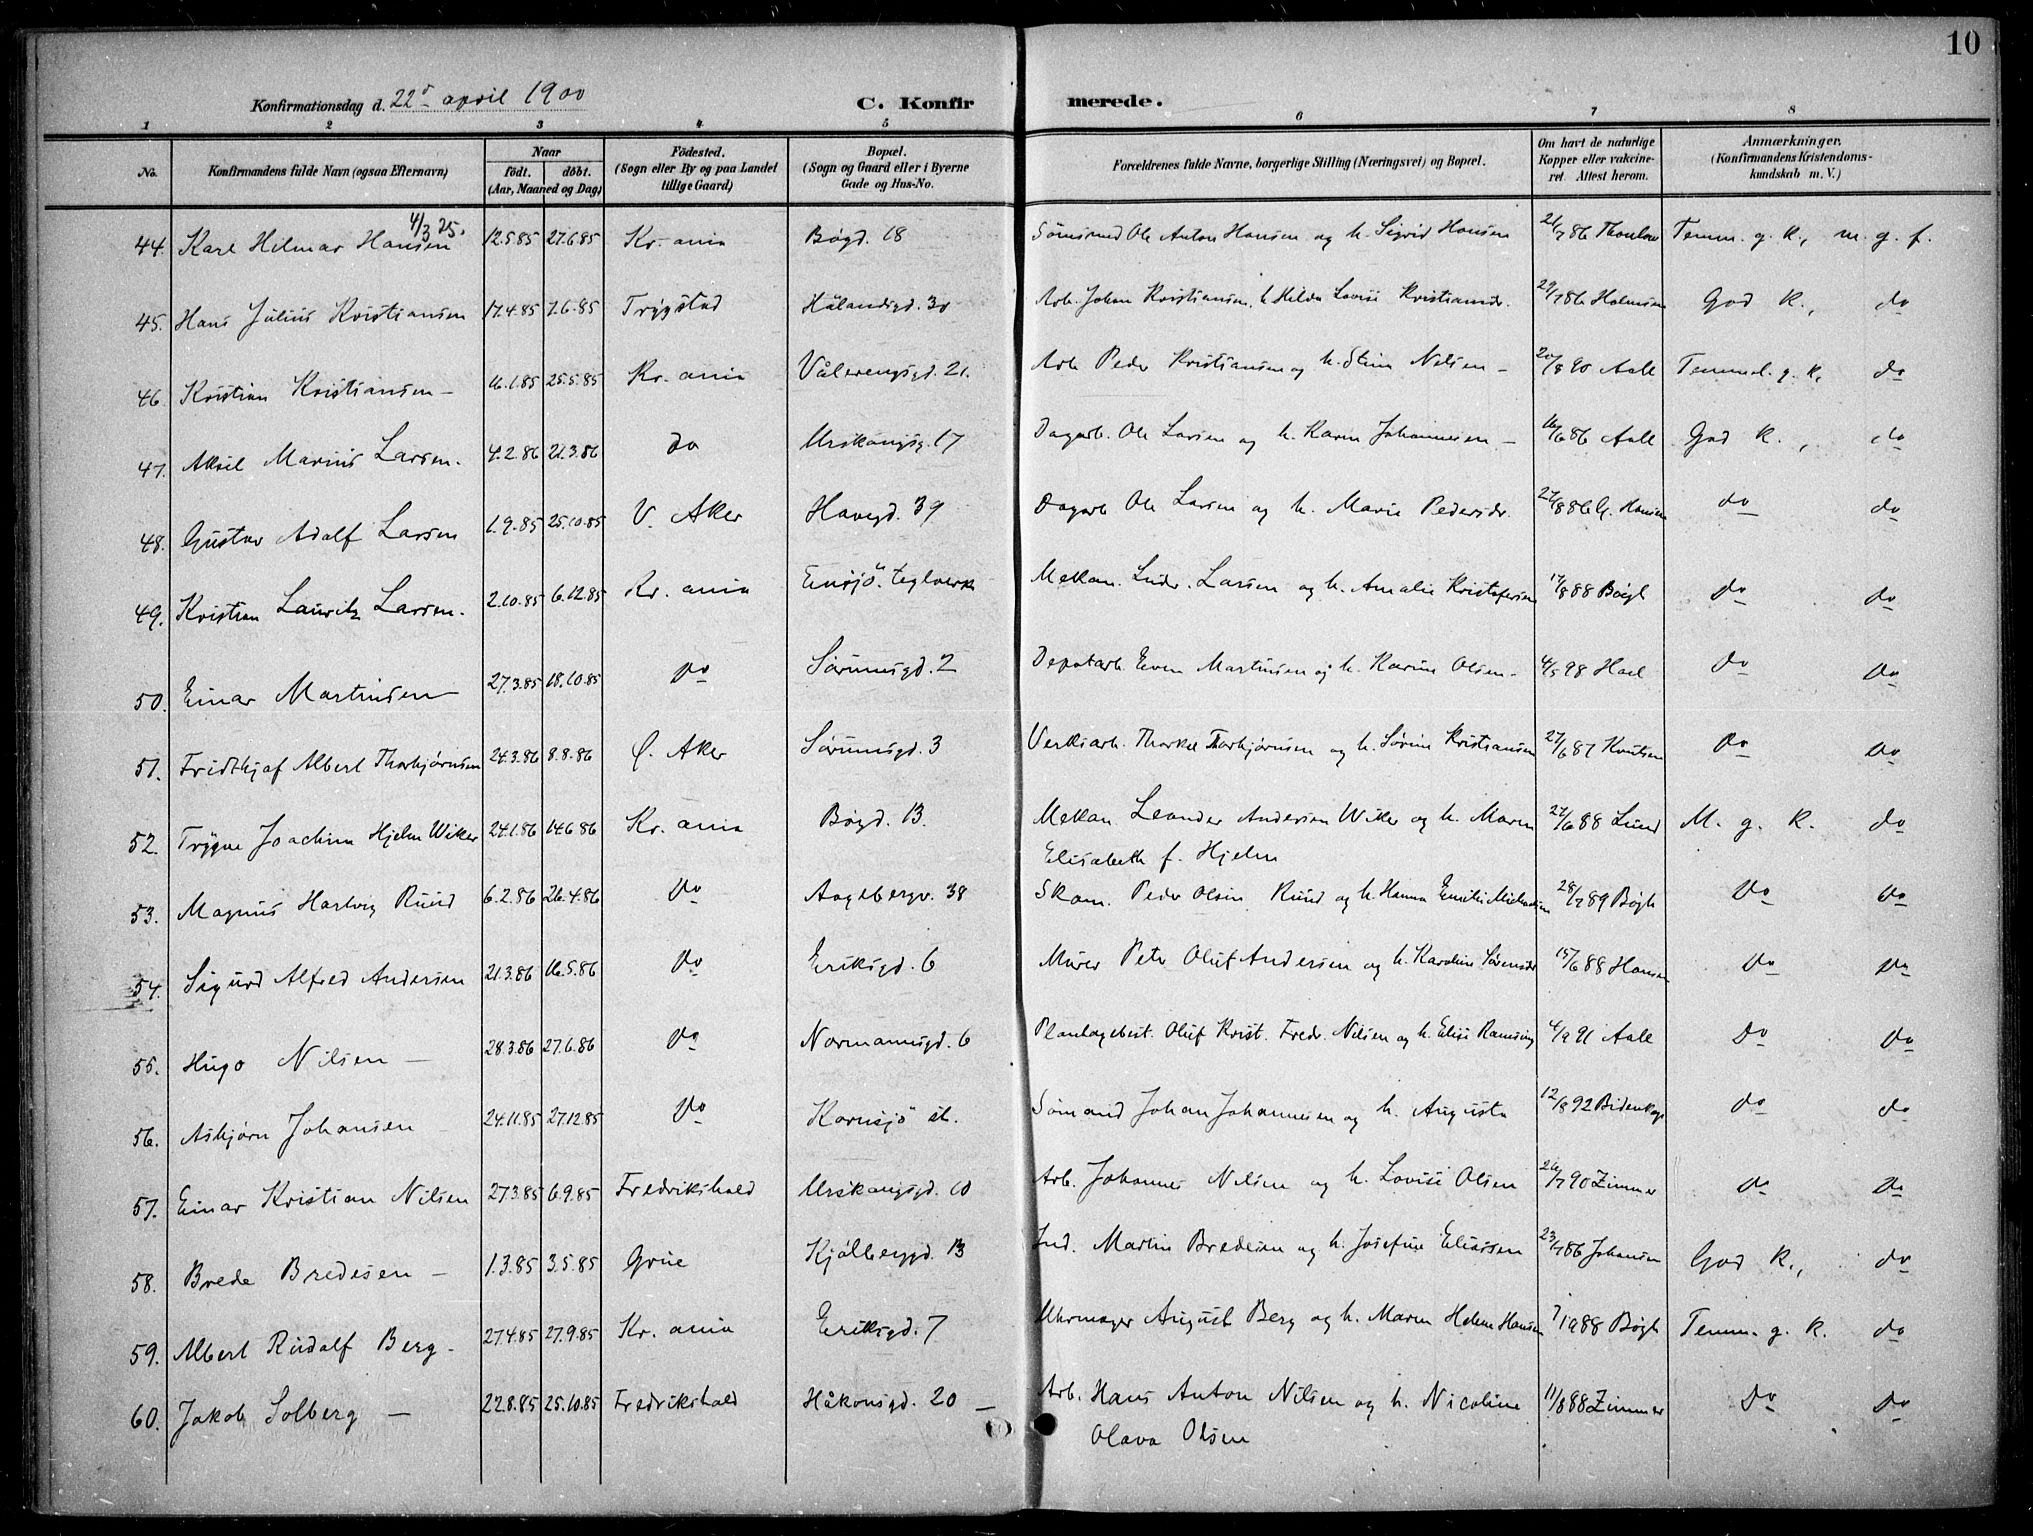 10
Konfirmationsdag d. 22d april 1900
C. Konfirmerede.
1 2 3 4 5 6 7 8
No. Konfirmandens fulde Navn (ogsaa Efternavn) Naar født. døbt. (Aar, Maaned og Dag) Fødested. (Sogn eller By og paa Landet tillige Gaard) Bopæl. (Sogn og Gaard eller i Byerne Gade og Hus-No. Forældrenes fulde Navne, borgerlige Stilling (Næringsvei) og Bopæl. Om havt de naturlige Kopper eller vakcineret. Attest herom. Anmærkninger. (Konfirmandens Kristendomskundskab m. V.)
4/3 25.
44. Karl Hilmar Hansen 12.5.85 27.6.85 Kr.ania Bøgd. 18 Sømand Ole Anton Hansen og h. Sigrid Hansen 26/7 86 Temm. g. k., m. g. f.
45. Hans Julius Kristiansen 17.4.85 7.6.85 Trygstad Hålandsgd. 30 Arb. Johan Kristiansen, h. Hilda Lovise Kristiansdr. 29/7 86 Holmsen God k., do
46. Kristian Kristiansen — 16.1.85 25.5.85 Kr.ania Vålerengsgd. 21. Arb. Peder Kristiansen og h. Stina Nilsen — 20/8 90 Aall Temmel. g. k. do
47. Aksel Marius Larsen. 4.2.86 21.3.86 do Urskougsg. 17 Dagarb. Ole Larsen og h. Karen Johannesen — 16/6 86 Aall God k., do
48. Gustav Adolf Larsen 1.9.85 25.10.85 V. Aker Havegd. 39 Dagarb. Ole Larsen og h. Marie Pedersdr. 27/8 86 G. Hansen do do
49. Kristian Lauritz Larsen. 2.10.85 6.12.85 Kr.ania Ensjø teglverk Mekan. Ludv. Larsen og h. Amalie Kristofersen 17/8 88 Bøgh do do
50. Einar Martinsen — 27.3.85 18.10.85 do Sørumsgd. 2 Depotarb. Even Martinsen og h. Karine Olsen — 4/5 98 Hoel do do
51. Fridthjof Albert Thorbjørnsen 24.3.86 8.8.86 Ø. Aker Sørumsgd. 3 Verksarb. Thorkel Thorbjørnsen og h. Sørine Kristiansen 27/6 87 Knutsen do do
52. Trygve Joachim Hjelm Wiker 24.1.86 14.6.86 Kr.ania Bøgd. 13. Mekan. Leander Andersen Wiker og h. Maren 27/6 88 Lund M. g. k. do
Elisabeth f. Hjelm
53. Magnus Hartvig Ruud 6.2.86 26.4.86 do Aagebergv. 38 Skom. Peder Olsen Ruud og h. Hanna Emilie Michaelsen 28/7 89 Bøgh do do
54. Sigurd Alfred Andersen 21.3.86 16.5.86 do Eriksgd. 6 Murer Peter Oluf Andersen og h. Karoline Sørensdr 15/6 88 Hansen do do
55. Hugo Nilsen — 28.3.86 27.6.86 do Normannsgd. 6 Plantagebest. Oluf Krist. Fredr. Nilsen og h. Elise Ramsing 4/9 91 Aall do do
56. Asbjørn Johansen 24.11.85 27.12.85 do Kornsjø st. Sømand Johan Johannesen og h. Augusta 12/8 92 Bidenkap do do
57. Einar Kristian Nilsen 27.3.85 6.9.85 Fredrikshald Urskougsgd. 10 Arb. Johannes Nilsen og h. Lovise Olsen 26/7 90 Zimmer do do
58. Brede Bredesen — 1.3.85 3.5.85 Grue Kjølberggd. 13 Ind. Martin Bredesen og h. Josefine Eliassen 23/7 86 Johansen God k., do
59. Albert Rudolf Berg — 27.4.85 27.9.85 Kr.ania Eriksgd. 7 Uhrmager August Berg og h. Maren Helene Hansen 7/10 88 Bøgh Temm. g. k. do
60. Jakob Solberg — 22.8.85 25.10.85 Fredrikshald Håkonsgd. 20 — Arb. Hans Anton Nilsen og h. Nicoline 11/8 88 Zimmer do do
Olava Olsen